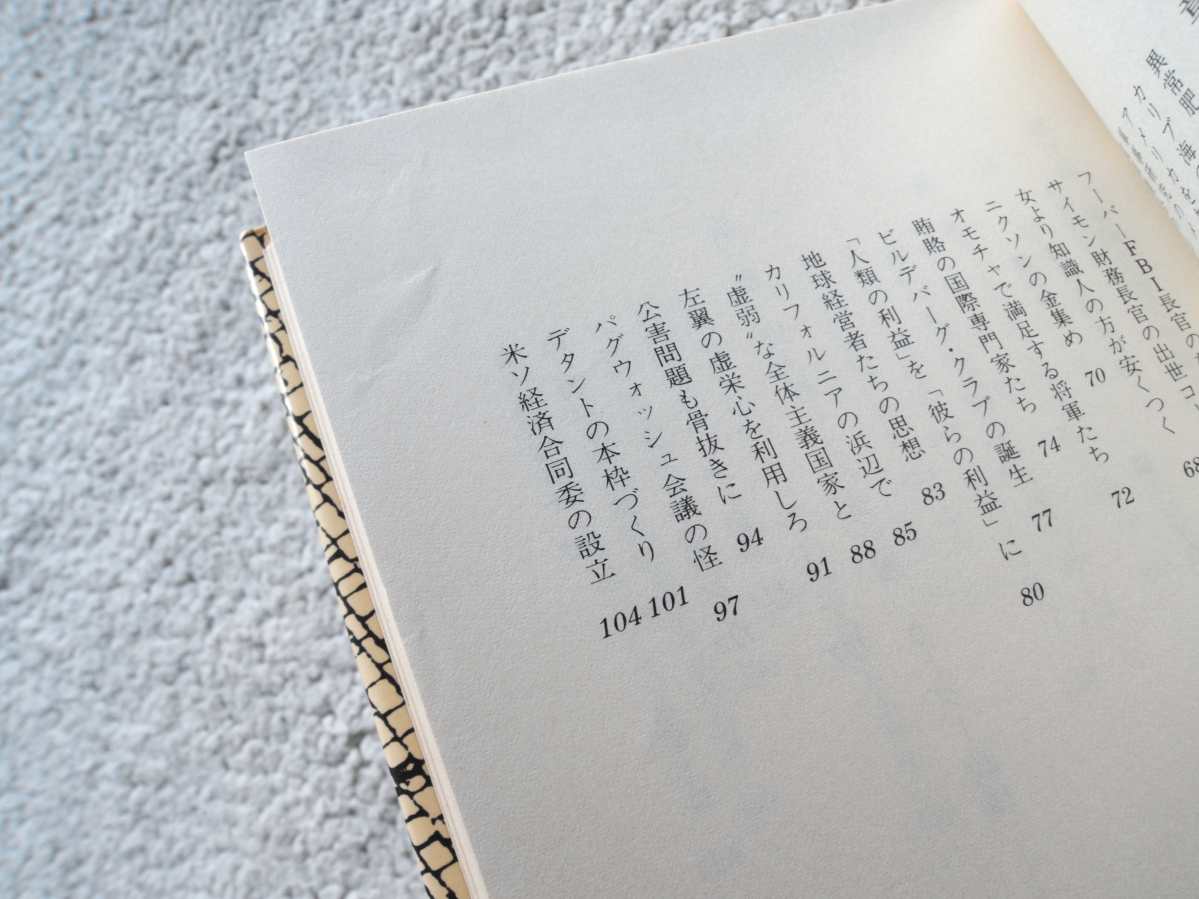 異常肥
カリブ海
アメリカを
フーバーFBI長官の
サイモン財務長官の出世コ
女より知識人の方が安くつく 68
ニクソンの金集め 70
オモチャで満足する将軍たち 72
賄賂の国際専門家たち 74
ビルデバーグ・クラブの誕生 77
「人類の利益」を「彼らの利益」に 80
地球経営者たちの思想 83
カリフォルニアの浜辺で 85
〝虚弱〟な全体主義国家と 88
左翼の虚栄心を利用しろ 91
公害問題も骨抜きに 94
パグウォッシュ会議の怪 97
デタントの本枠づくり 101
米ソ経済合同委の設立 104